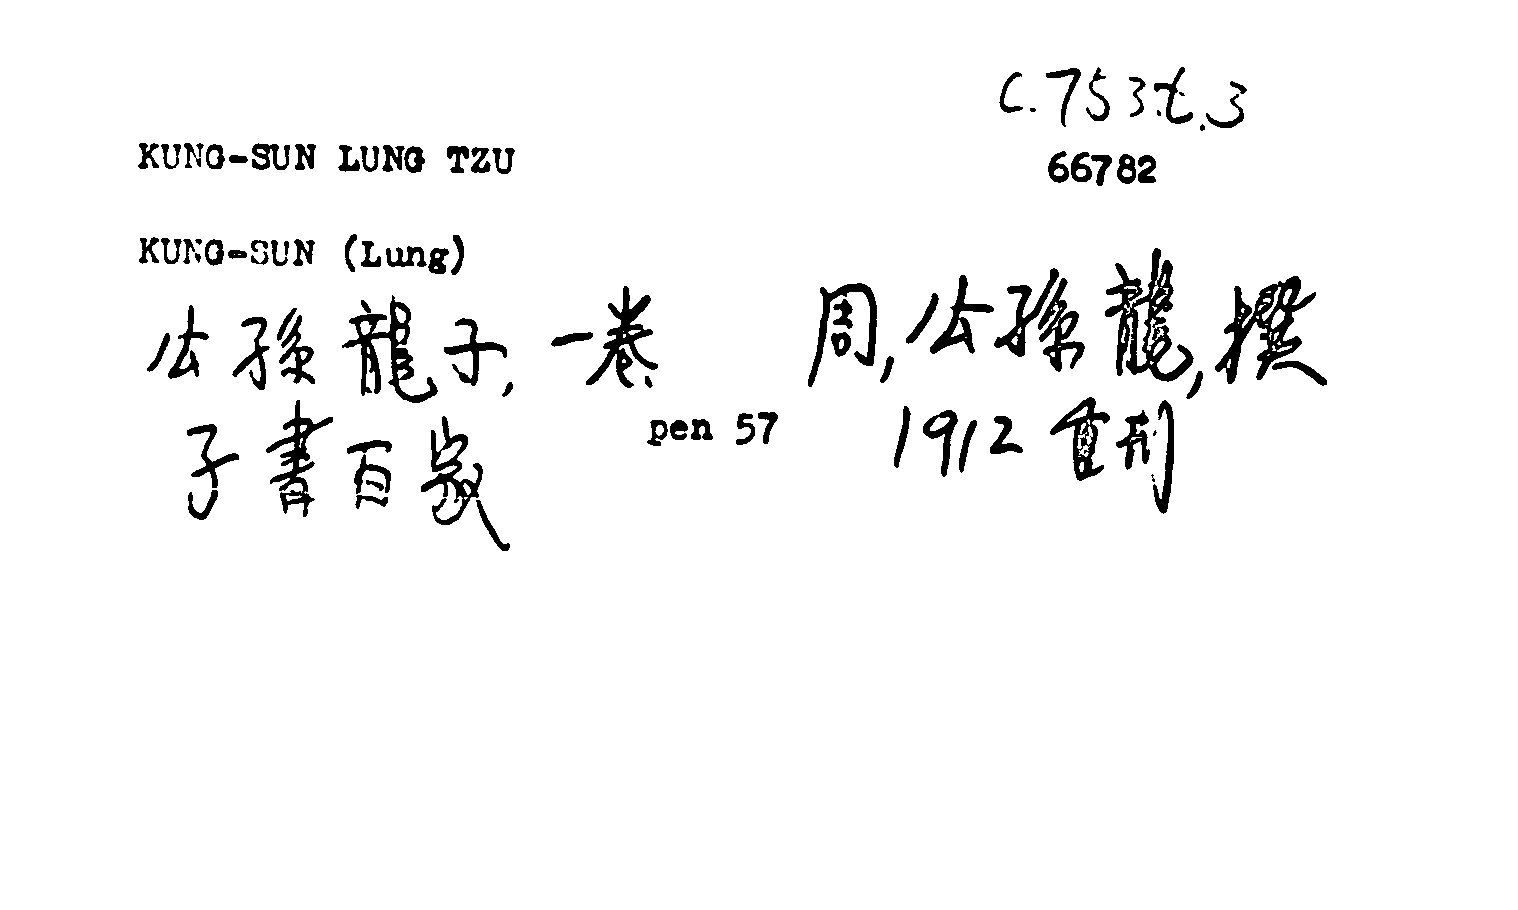 C.753.t.3
KUNG-SUN LUNG TZU
66782
KUNG-SUN (Lung)
公孫龍子,一卷. 周,公孫龍,撰
子書百家 pen 57 1912 重刊